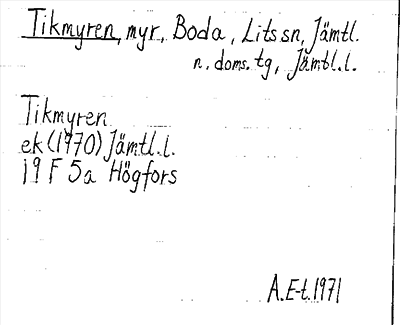 Tikmyren, myr, Boda, Lits sn, Jämtl.
n. doms. tg, Jämtl.l.
Tikmyren
ek (1970) Jämtl.l.
19 F 5a Högfors
A.E-t. 1971